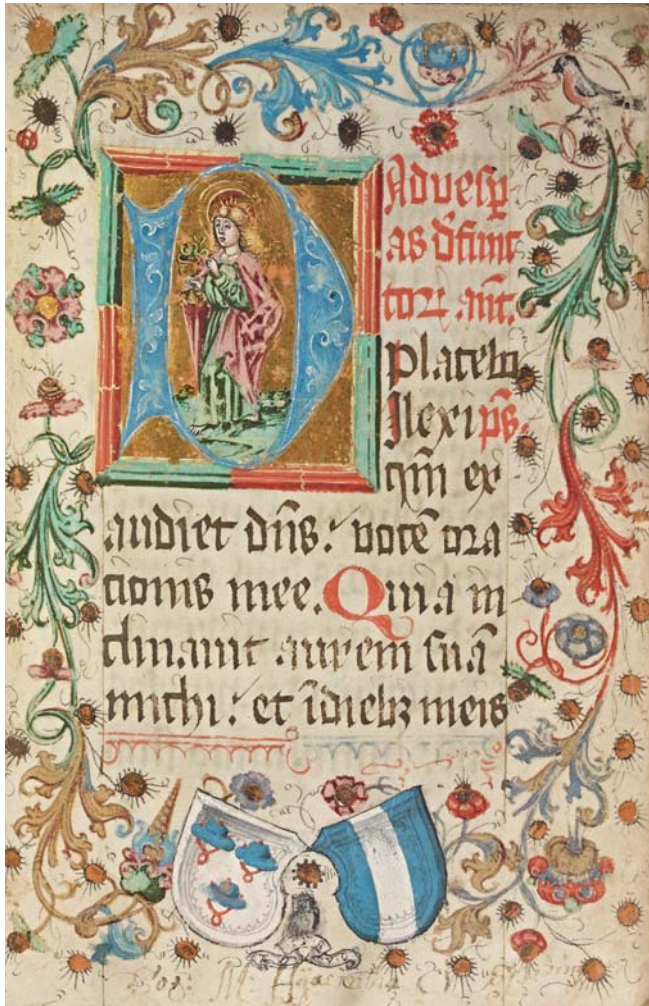 Ad vesꝑ
as d̄func
torꝝ .an̄t.
Placebo.
DIlexi ps̄.
qm̄ ex
audiet dn̄s: vocē ora
tionis mee. Quia in
clinauit aurem suā
michi: et ī diebꝫ meis